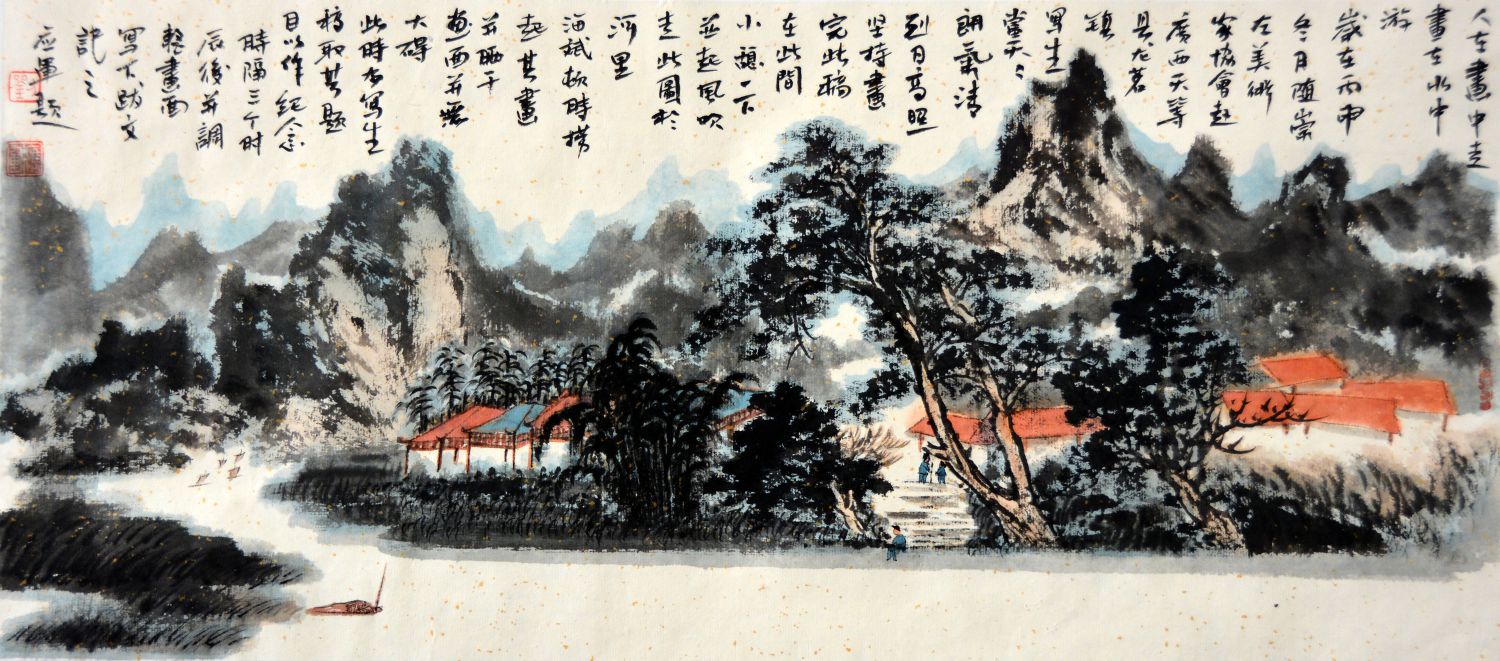 人在畫中走
畫在水中
游
歲在丙申
冬月随崇
左美術
家協會赴
廣西天等
县龙茗
镇
寫生
當天々
朗氣清
到月高照
坚持畫
完此稿
在此間
小憩一下
並起風吹
走此圖於
河里
海斌顿時撈
起其畫
并晒干
画面并無
大碍
此時右寫生
稿取其題
目以作紀念
時隔三个时
辰後并調
整畫面
寫下跋文
記之
应墨题